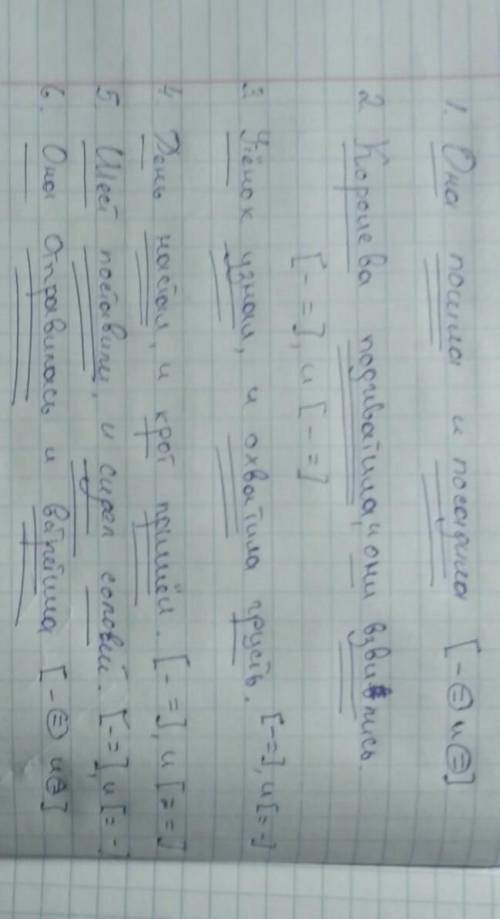 1. Она пошила и посадила [- ⊜ и ⊜]
2. Королева подхватила, и они взвились.
[- =], и [- =]
3. Утёнок узнал, и охватила грусть. [- =], и [= -]
4. День настал, и крот пришёл. [- =], и [= =]
5. Шест поставили, и сидел соловей. [- =], и [= -]
6. Она отправилась и встретила [- ⊜ и ⊜]